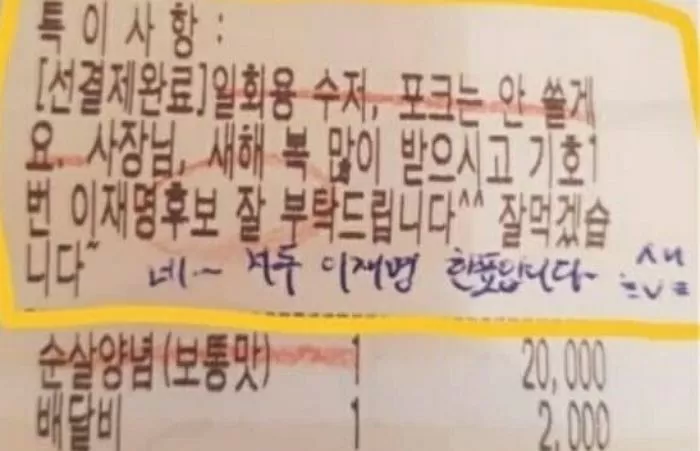 특이사항 :
[선결제완료]일회용 수저, 포크는 안 쓸게
요. 사장님, 새해 복 많이 받으시고 기호1
번 이재명후보 잘 부탁드립니다^^ 잘먹겠습
니다~ 네~ 저두 이재명 한표입니다~
순살양념(보통맛) 1 20,000
배달비 1 2,000